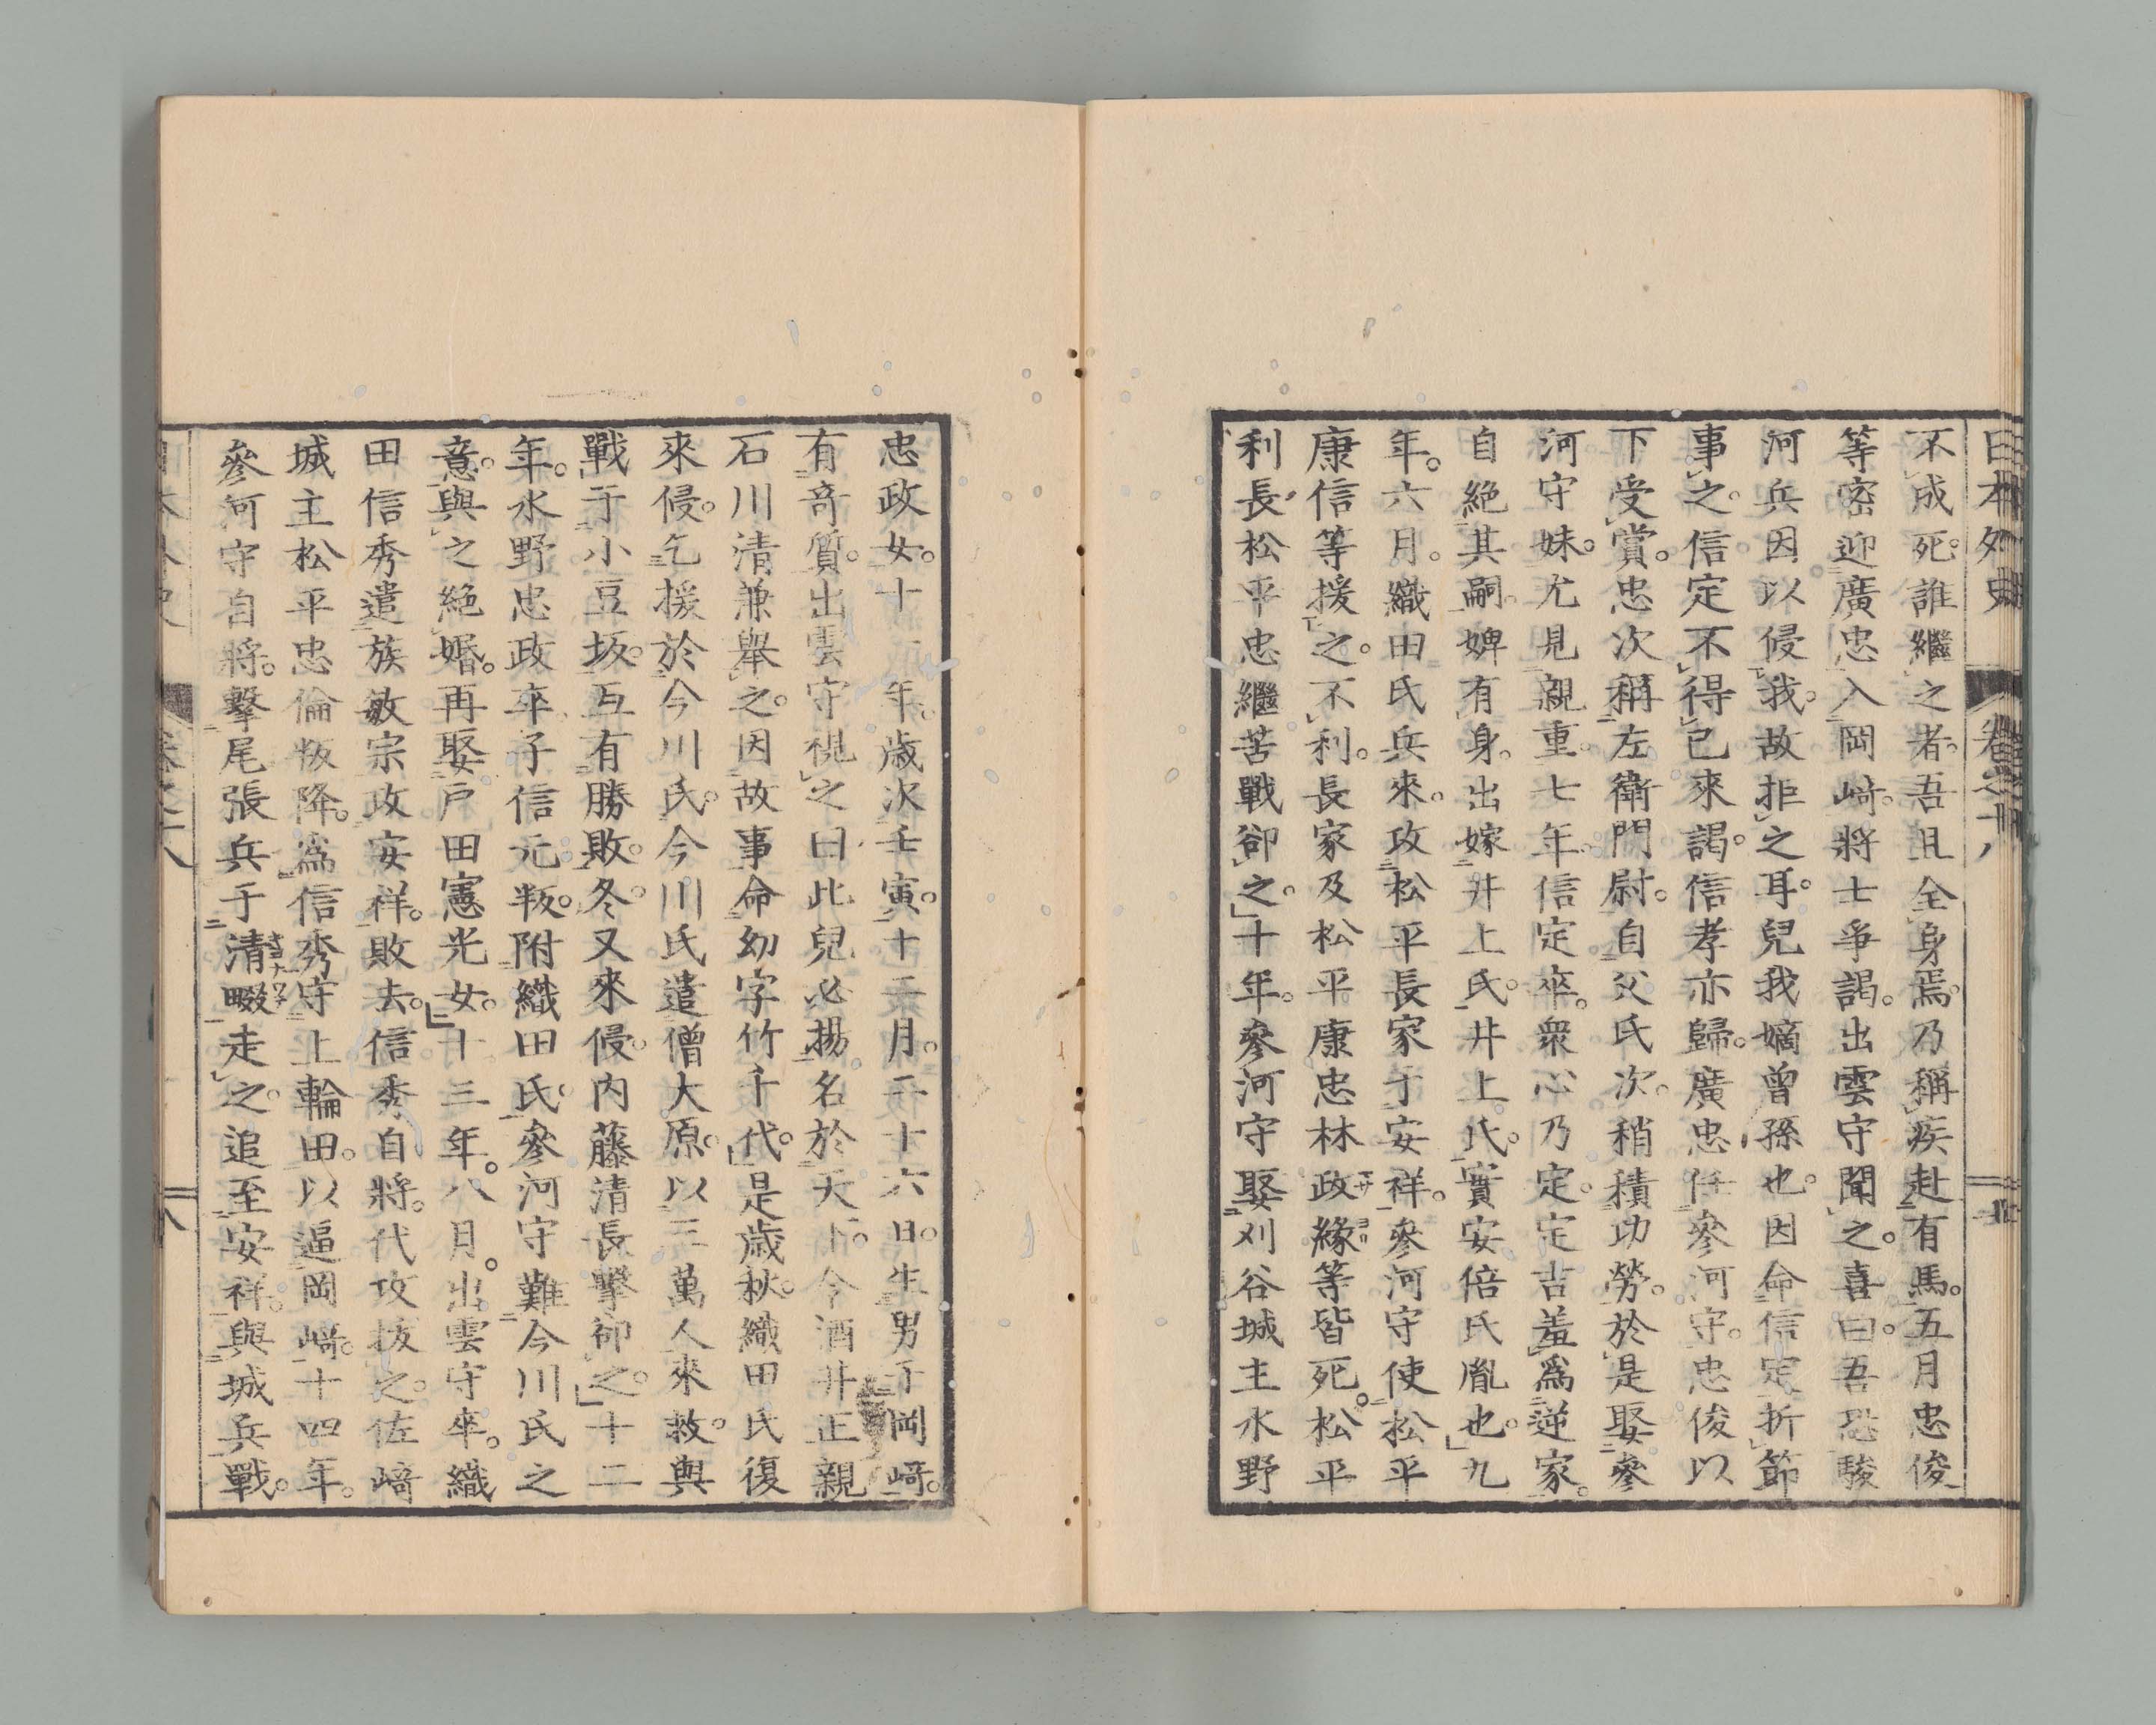 日本外史 卷之十八
不成死。誰繼之者。吾且全身焉。乃稱疾赴有馬。五月忠俊
等密迎廣忠入岡﨑。將士爭謁。出雲守聞之。喜曰。吾恐駿
河兵因以侵我。故拒之耳。兒我嫡曾孫也。因命信定折節
事之。信定不得已來謁。信孝亦歸。廣忠任參河守。忠俊以
下受賞。忠次稱左衛門尉。自父氏次。稍積功勞。於是娶參
河守妹。尤見親重。七年。信定卒。衆心乃定。定吉羞爲逆家。
自絶其嗣。婢有身。出嫁井上氏。井上氏。實安倍氏胤也。九
年。六月。織田氏兵來。攻松平長家于安祥。參河守使松平
康信等援之。不利。長家及松平康忠林政緣等皆死。松平
利長松平忠繼苦戰卻之。十年。參河守娶刈谷城主水野
忠政女。十一年。歳次壬寅。十二月。二十六日。生男于岡﨑。
有奇質。出雲守視之曰。此兒必揚名於天下。令酒井正親
石川清兼舉之。因故事命幼字竹千代。是歳秋。織田氏復
來侵。乞援於今川氏。今川氏遣僧大原。以三萬人來救。與
戰于小豆坂。互有勝敗。冬。又來侵。内藤清長擊卻之。十二
年。水野忠政卒。子信元叛。附織田氏。參河守難今川氏之
意。與之絶婚。再娶戸田憲光女。十三年。八月。出雲守卒。織
田信秀遣族敏宗攻安祥。敗去。信秀自將。代攻拔之。佐﨑
城主松平忠倫叛降。爲信秀守上輪田。以逼岡﨑。十四年。
參河守自將。擊尾張兵于清畷走之。追至安祥。與城兵戰。